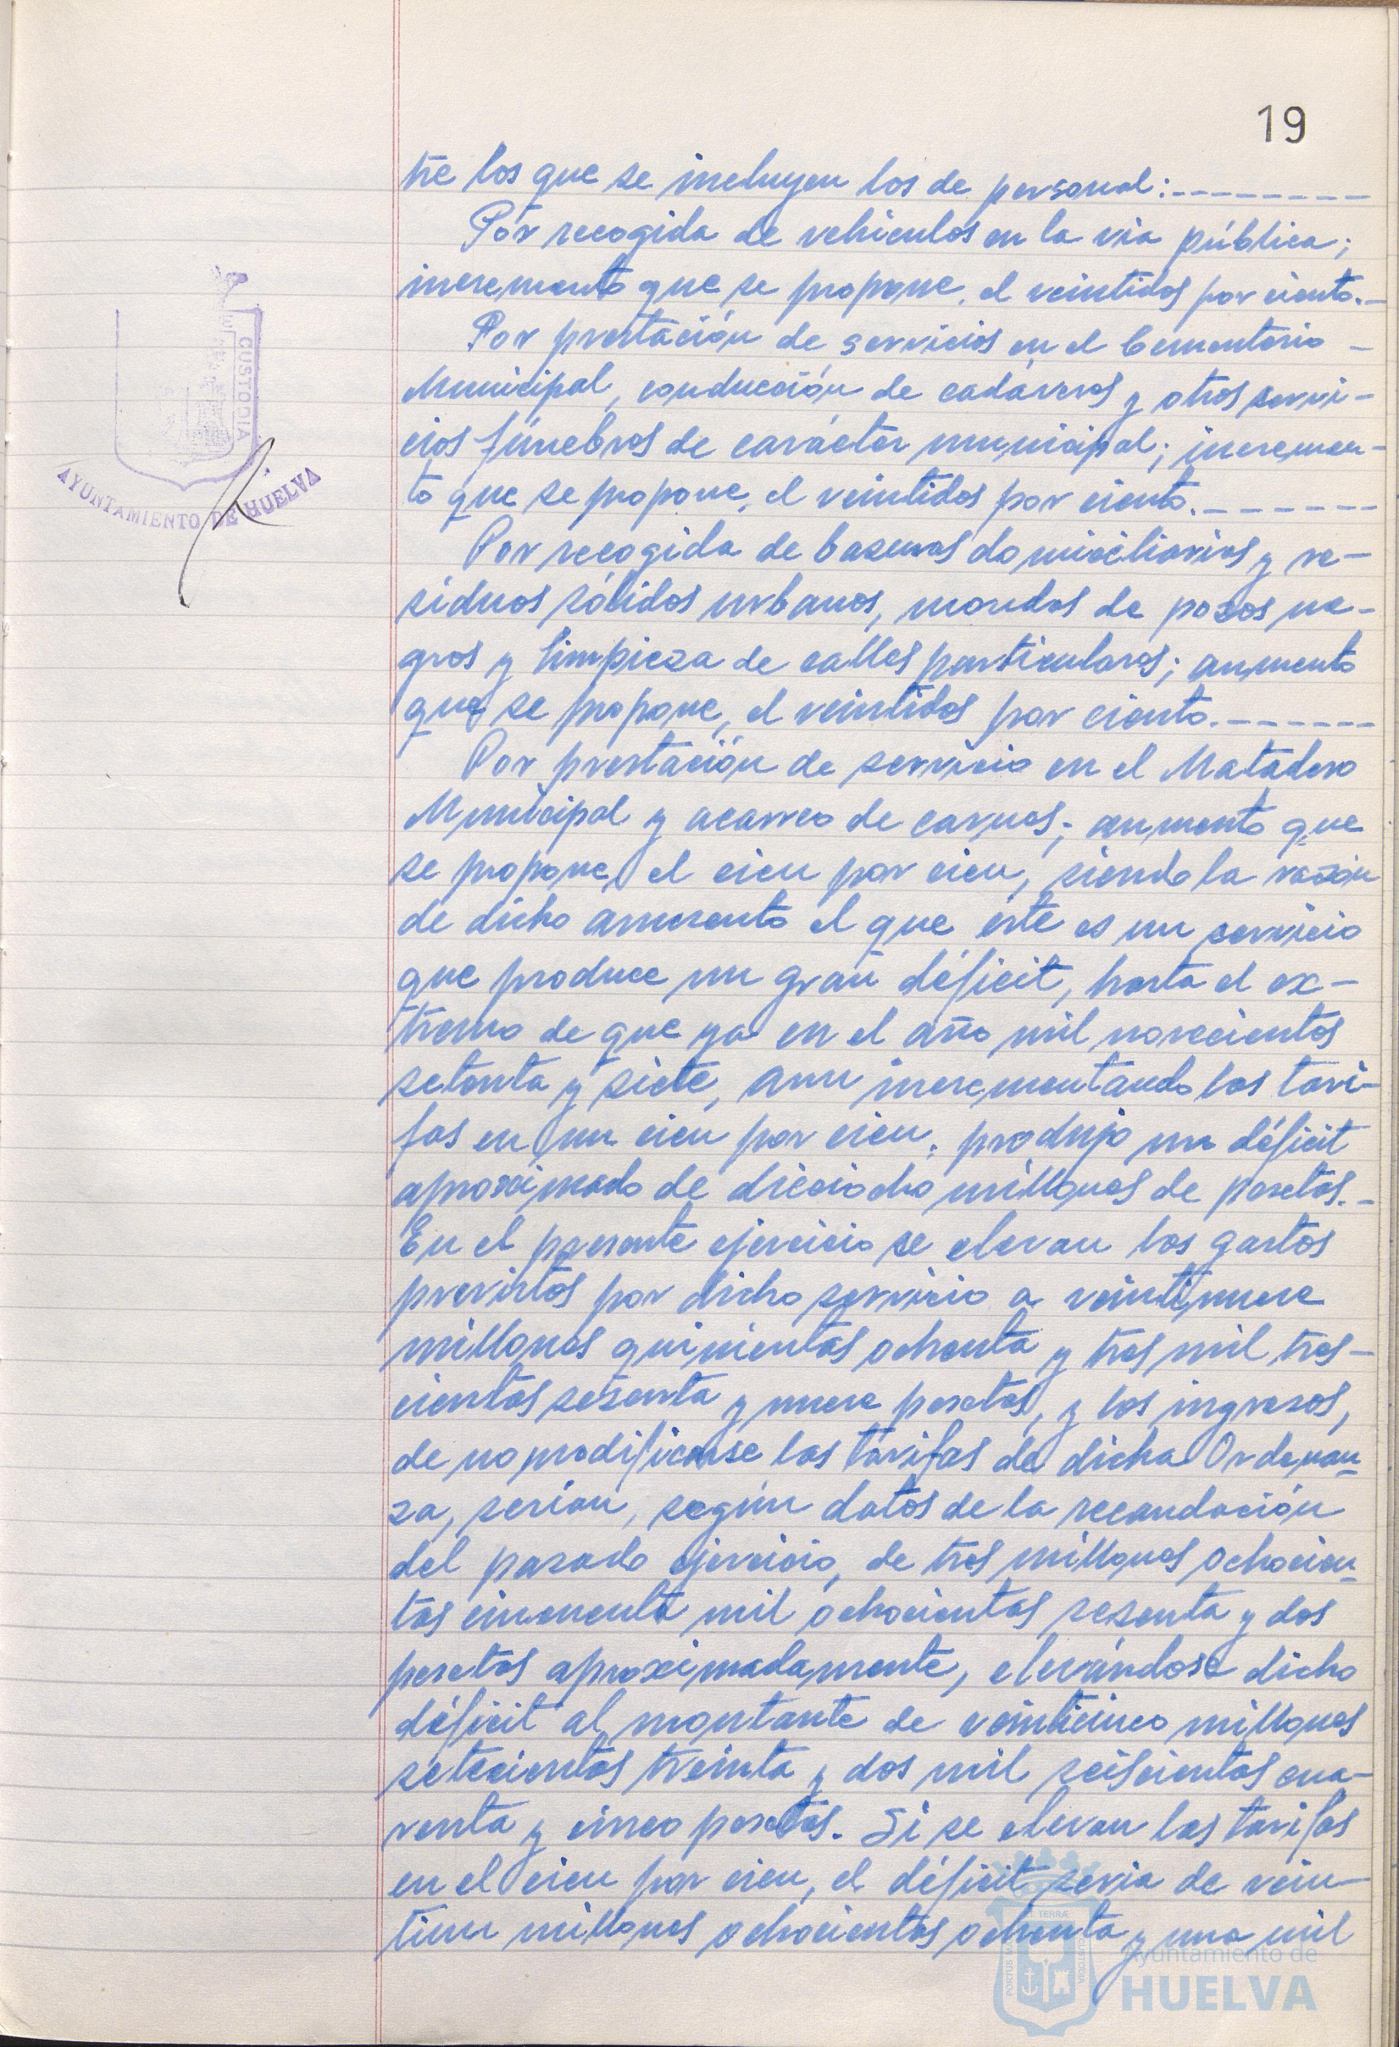 19
tre los que se incluyen los de personal:--------
Por recogida de vehiculos en la via pública;
incremento que se propone, el veintidos por ciento.-
Por prestación de servicios en el Cementerio -
Municipal, conducción de cadáveres y otros servi-
cios fúnebres de carácter municipal; incremen-
to que se propone, el veintidos por ciento.-------
Por recogida de basuras domiciliarias y re-
siduos sólidos urbanos, mondas de pozos ne-
gros y limpieza de calles particulares; aumento
que se propone, el veintidos por ciento.------
Por prestación de servicio en el Matadero
Municipal y acarreo de carnes; aumento que
se propone, el cien por cien, siendo la razón
de dicho aumento el que éste es un servicio
que produce un gran déficit, hasta el ex-
tremo de que ya en el año mil novecientos
setenta y siete, aun incrementando las tari-
fas en un cien por cien, produjo un déficit
aproximado de dieciocho millones de pesetas.-
En el presente ejercicio se elevan los gastos
previstos por dicho servicio a veintinueve
millones quinientas ochenta y tres mil tres-
cientas sesenta y nueve pesetas, y los ingresos,
de no modificarse las tarifas de dicha Ordenan-
za, serian, según datos de la recaudación
del pasado ejercicio, de tres millones ochocien-
tas cincuenta mil ochocientas sesenta y dos
pesetas aproximadamente, elevándose dicho
déficit al montante de veinticinco millones
setecientas treinta y dos mil seiscientas cua-
renta y cinco pesetas. Si se elevan las tarifas
en el cien por cien, el déficit seria de vein-
tiun millones ochocientas ochenta y una mil
CUSTODIA
AYUNTAMIENTO DE HUELVA
Ayuntamiento de
HUELVA